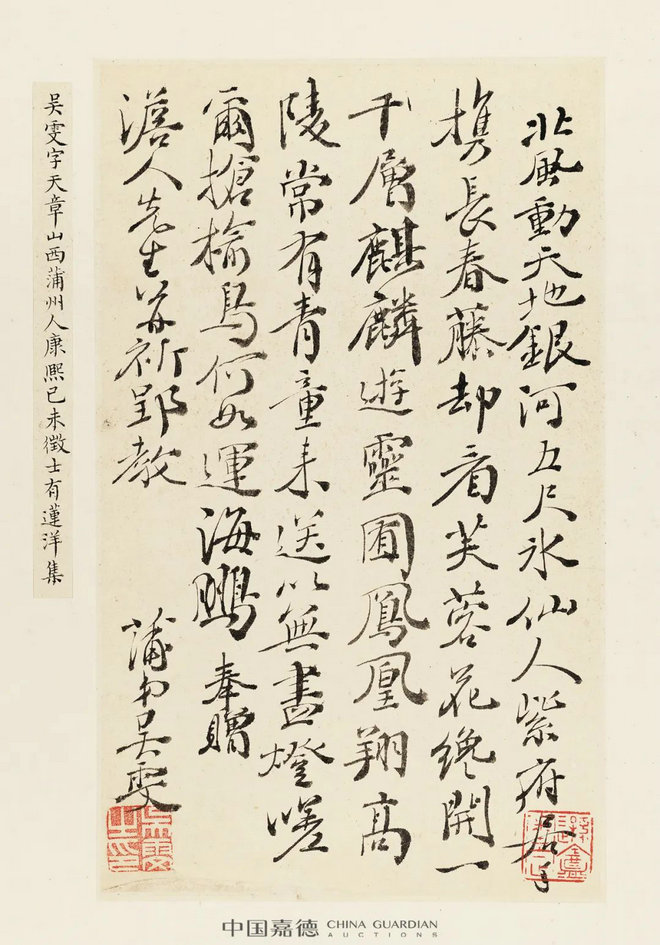 北風動天地銀河五尺冰仙人紫府居手
携長春藤却看芙蓉花纔開一
千層麒麟遊靈囿鳳凰翔高
陵常有青童来送以無盡燈嗟
爾搶榆鳥何如運海鵬奉贈
澹人先生并祈郢教
蒲州吴雯
吴雯之印
吴雯字天章山西蒲州人康熙己未徵士有蓮洋集
中国嘉德 CHINA GUARDIAN
AUCTIONS